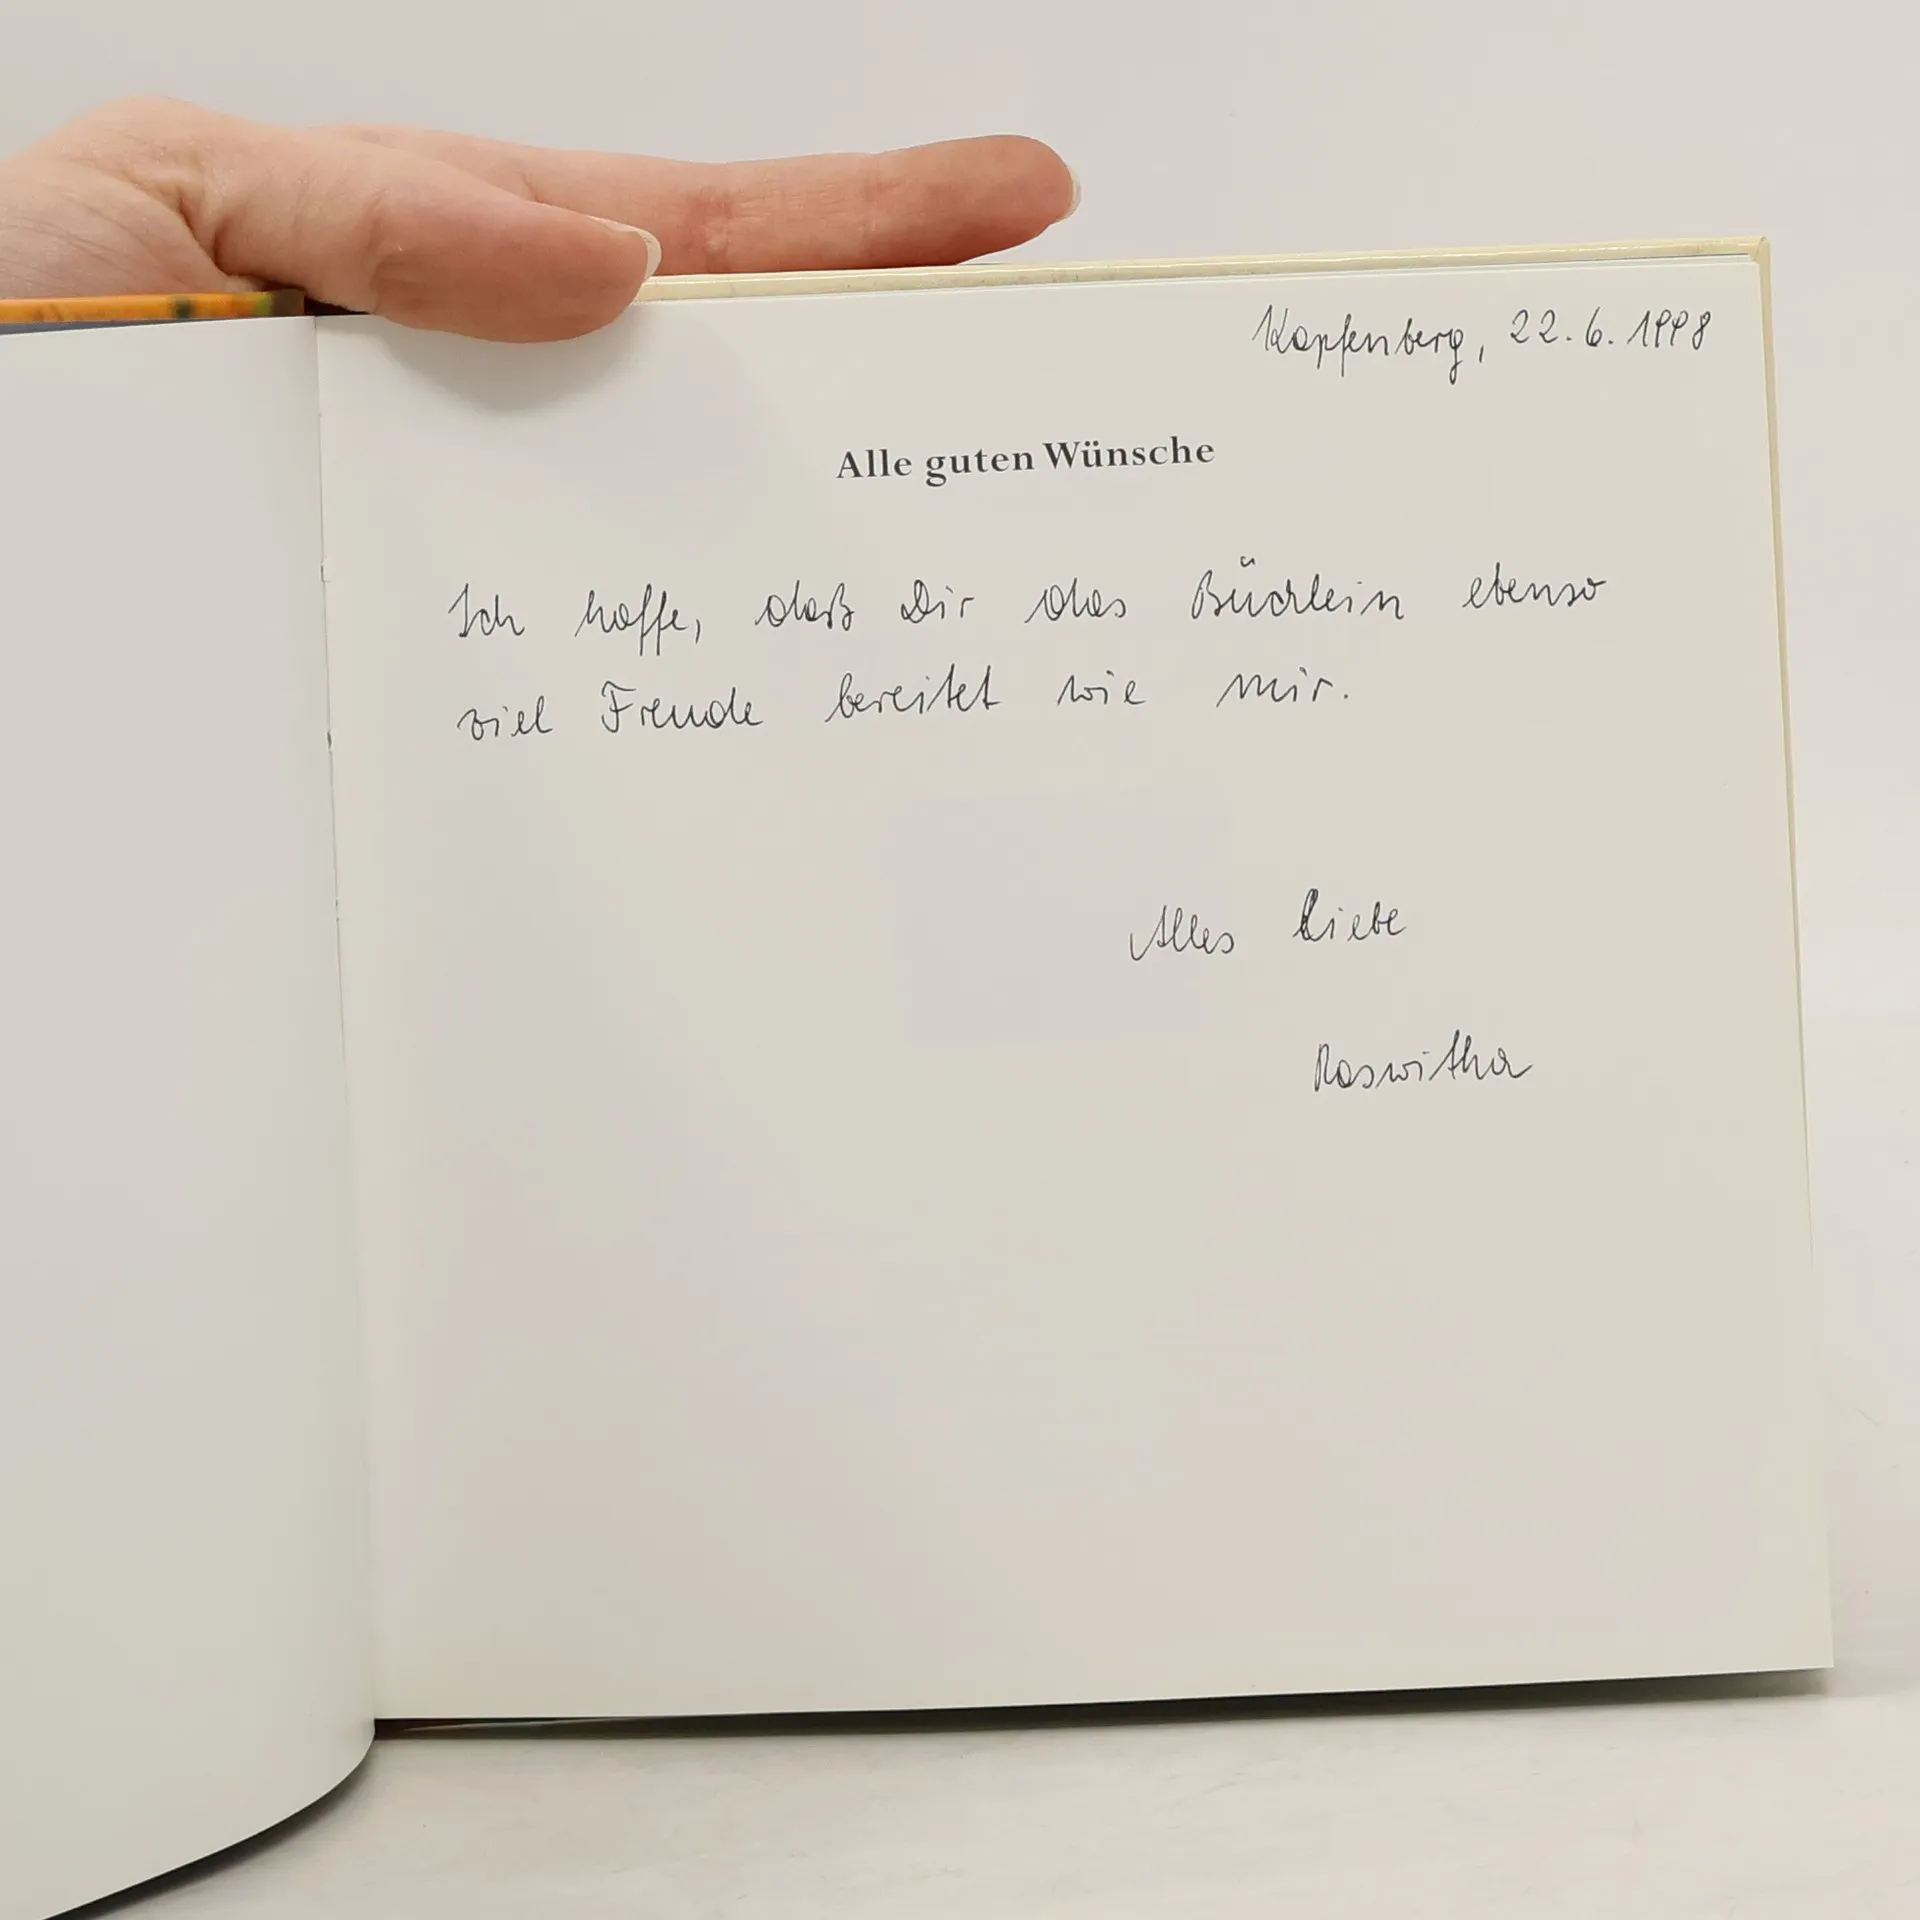 Kapfenberg, 22.6.1998
Alle guten Wünsche
Ich hoffe, daß Dir das Büchlein ebenso
viel Freude bereitet wie mir.
Alles Liebe
Roswitha